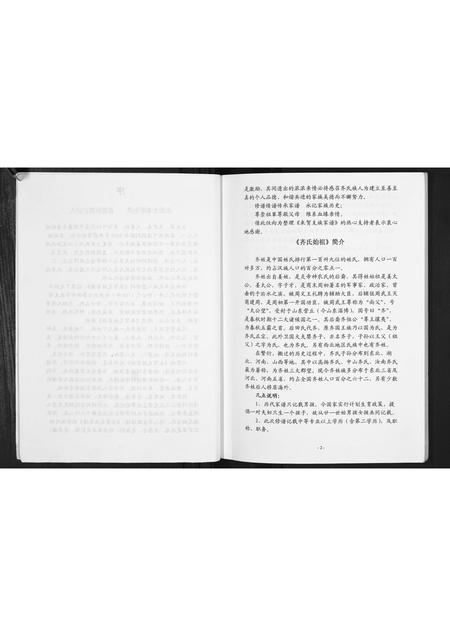 是激励，其间透出的浓浓亲情必将感召齐氏族人为建立至善至
真的个人品德，和谐共进的家族美德而不懈努力。
修谱续谱传承家谱 永记家族历史；
尊崇祖辈尊敬父母 维系血缘亲情。
借此位向为整理《来贺支族家谱》的热心支持者表示衷心
地感谢。
《齐氏始祖》简介
齐姓是中国姓氏排行第一百卅九位的姓氏，拥有人口一百
卅多万，约占汉族人口的百分之零点一。
齐姓出自姜姓，是炎帝神农氏的后裔，其得姓始祖是姜太
公。姜太公，字子牙，是商末周初著名的军事家、政治家，曾
垂钓于
水之滨，被周文王礼聘为辅助大臣，后辅佐周武王灭
商建周，是周初第一开国功臣，被周武王尊称为“尚父”，号
“太公望”，受封于山东营丘（今山东淄博），国号曰“齐”，
是春秋时期十二大诸侯国之一。其后裔齐桓公“尊王攘夷”，
为春秋五霸之首，后田氏代齐，原齐国王族乃以国为氏，是为
齐氏正宗，此外卫国大夫
齐子，亦名齐子，子孙以王父（祖
父）之字为氏，也为齐氏，另有南北地区民族中也有齐姓。
在繁衍、搬迁的历史过程中，齐氏子孙分布到东北、湖
北、河南、山西等地，其中以高扬齐氏、中山齐氏、汝南齐氏
最为著称，为齐姓三大郡望，现今齐姓族多分布于东北三省及
河北、河南五省，约占全国齐姓人口百分之六十二，另有少数
齐姓后人移居海外。
几点说明：
1、历代家谱只记载男祖，今国家实行计划生育政策，提
倡一对夫妇只生一个孩子，故从廿一世始男祖女祖共同记载。
2、此次修谱记载中等专业以上学历（含第二学历），及职
称、职务。
- 2 -